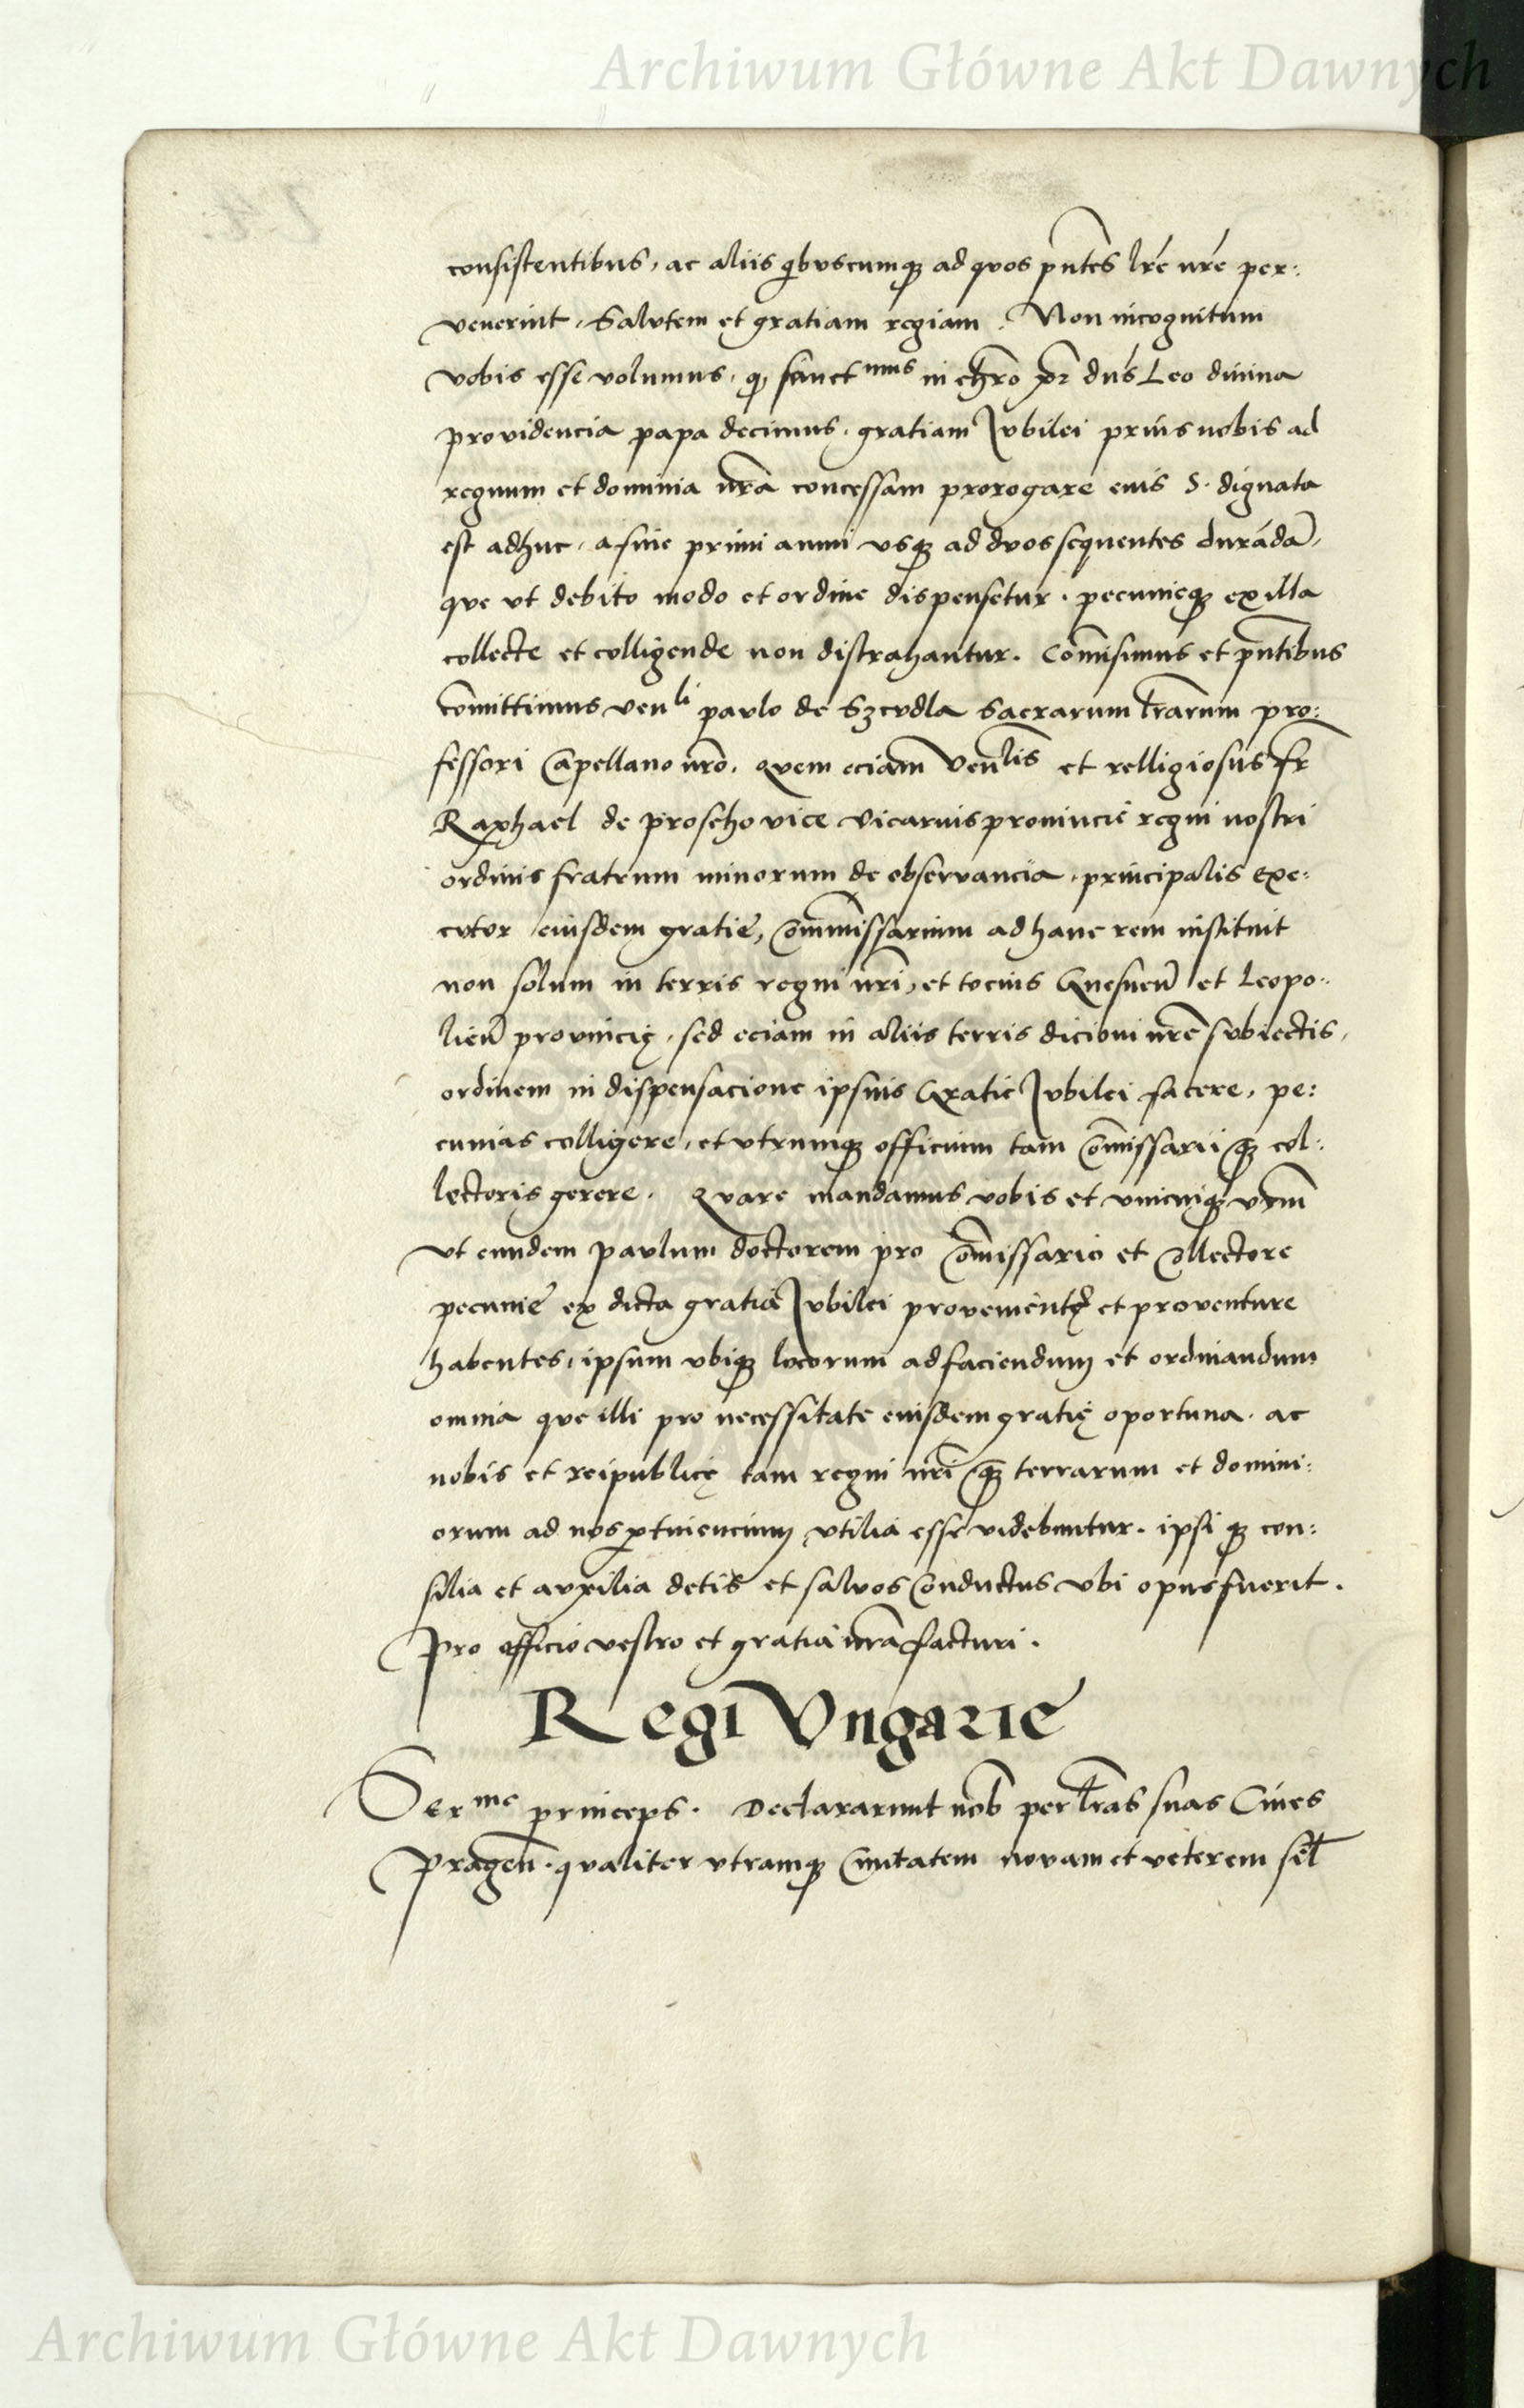 Archiwum Główne Akt Dawnych
consistentibus, ac aliis quibuscumq ad quos pñtes lr̃e nr̃e per:
venerint, Salvtem et gratiam regiam. Non incognitum
vobis esse volumus, q, sanctmus in chr̃o pr̃ dñs Leo divina
providencia papa decimus, gratiam Jvbilei prius nobis ad
regnum et dominia nr̃a concessam prorogare eius S. dignata
est adhuc, a fine primi anni vsq ad dvos sequentes durãdã,
que vt debito modo et ordine dispensetur, pecunieq ex illa
collecte et colligende non distrahantur. Com̃isimus et pñtibus
com̃ittimus venli pavlo de Szcvdla Sacrarum lr̃arum pro:
fessori Capellano nr̃o, qvem eciam Venlis et relligiosus fr̃
Raphael de proscho vice vicarius provincie regni nostri
ordinis fratrum minorum de observancia, principalis exe:
cvtor eiusdem gratie, Com̃missarium ad hanc rem instituit
non solum in terris regni nr̃i, et tocius Gnesneñ et Leopo:
lieñ provincię, sed eciam in aliis terris dicioni nr̃e svbiectis,
ordinem in dispensacione ipsius Gratie Jvbilei facere, pe:
cunias colligere, et vtrumq officium tam Com̃issarii q̃ col:
lectoris gerere. Qvare mandamus vobis et vnicuiq vr̃m
vt eundem pavlum doctorem pro Com̃issario et Collectore
pecunie ex dicta gratia Jvbilei provenientę et proventure
habentes, ipsum vbiq locorum ad faciendum et ordinandum
omnia que illi pro necessitate eiusdem gratię oportuna, ac
nobis et reipublicę tam regni nr̃i q̃ terrarum et domini:
orum ad nos ptinencium vtilia esse videbuntur, ipsi q con:
silia et avxilia detis et salvos Conductus vbi opus fuerit.
Pro officio vestro et gratia nr̃a facturi.
Regi Vngarie
Serme princeps. Declararunt nob̃ per lr̃as suas Cives
Prageñ. qvaliter vtramq Civitatem novam et veterem sel̃
Archiwum Główne Akt Dawnych